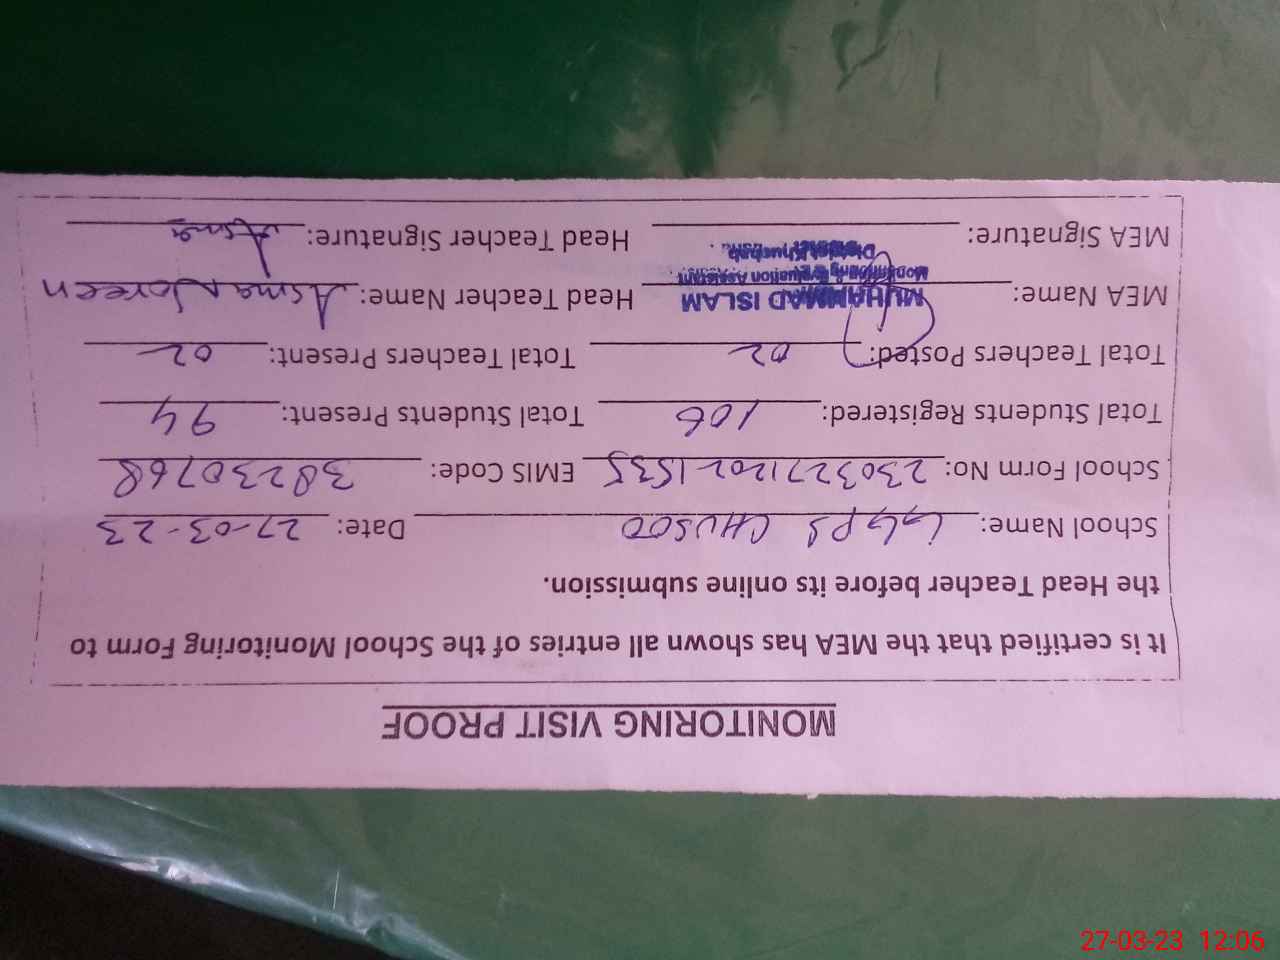 MONITORING VISIT PROOF
It is certified that the MEA has shown all entries of the School Monitoring Form to
the Head Teacher before its online submission.
School Name: GGPS CHUSOO Date: 27-03-23
School Form No: 23032712021535 EMIS Code: 38230768
Total Students Registered: 106 Total Students Present: 94
Total Teachers Posted: 02 Total Teachers Present: 02
MEA Name: MUHAMMAD ISLAM Head Teacher Name: Asma Noreen
Monitoring & Evaluation Assistant
District Khushab
MEA Signature: Head Teacher Signature: Asma
27-03-23 12:06